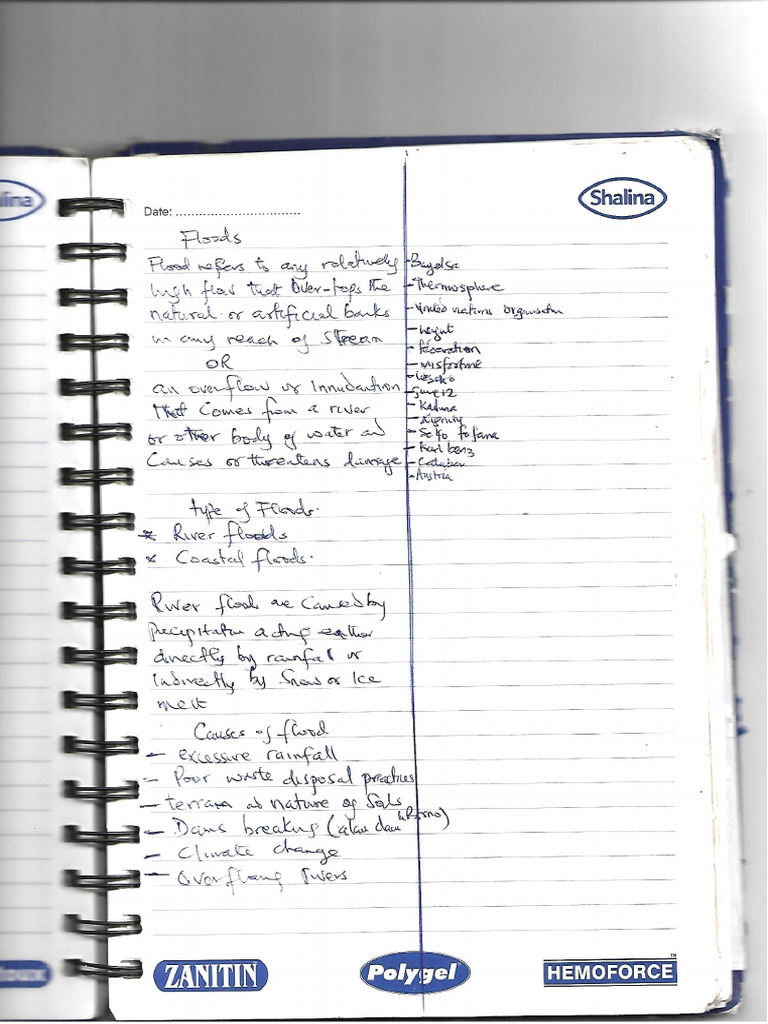 lina
Shalina
Date: ................................
Floods
Flood refers to any relatively
high flow that Over-tops the
natural or artificial banks
in any reach of Stream
OR
an overflow or Innudantion
that comes from a river
or other body of water and
Causes or threatens damage
type of Floods.
* River floods
* Coastal floods.
River floods are Caused by
Precipitation acting either
directly by rainfall or
Indirectly by Snow or Ice
melt
Causes of flood
- excessive rainfall
- Poor waste disposal practices
- terrain and nature of Soils
- Dams breaking (alau dam in Borno)
- Climate change
- Overflowing rivers
- Bayelsa
- Thermosphere
- United nations organisation
- height
- federation
- misfortune
- Kaduna
- dignity
- Seko fofana
- Karl benz
- Calabar
- Austria
ZANITIN
Polygel
HEMOFORCE
TM